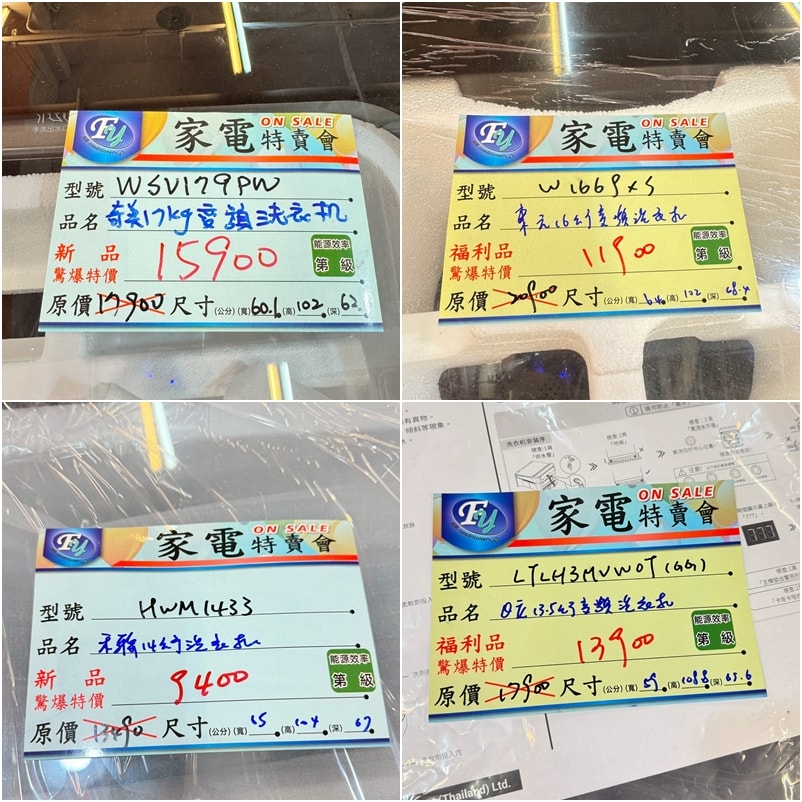 Fy
家電特賣會
ON SALE
型號 WSV179PW
品名 奇美17kg变頻洗衣机
新品
驚爆特價 15900
能源效率
第 級
原價 17900 尺寸(公分)(寬)60.1(高)102(深)62
Fy
家電特賣會
ON SALE
型號 W1669XS
品名 東元16公斤变频洗衣机
福利品
驚爆特價 11900
能源效率
第 級
原價 20900 尺寸(公分)(寬) (高)102(深)68.4
Fy
家電特賣會
ON SALE
型號 HWM1433
品名 禾聯14公斤洗衣机
新品
驚爆特價 9400
能源效率
第 級
原價 尺寸(公分)(寬)65(高)104(深)67
有異物。
傾斜等現象。
洗衣机安裝時
Fy
家電特賣會
ON SALE
型號 LTLH3MVWOT(GG)
品名 13.5公斤变频洗衣机
福利品
驚爆特價 13900
能源效率
第 級
原價 17900 尺寸(公分)(寬)59(高)108.8(深)65.6
(Thailand) Ltd.